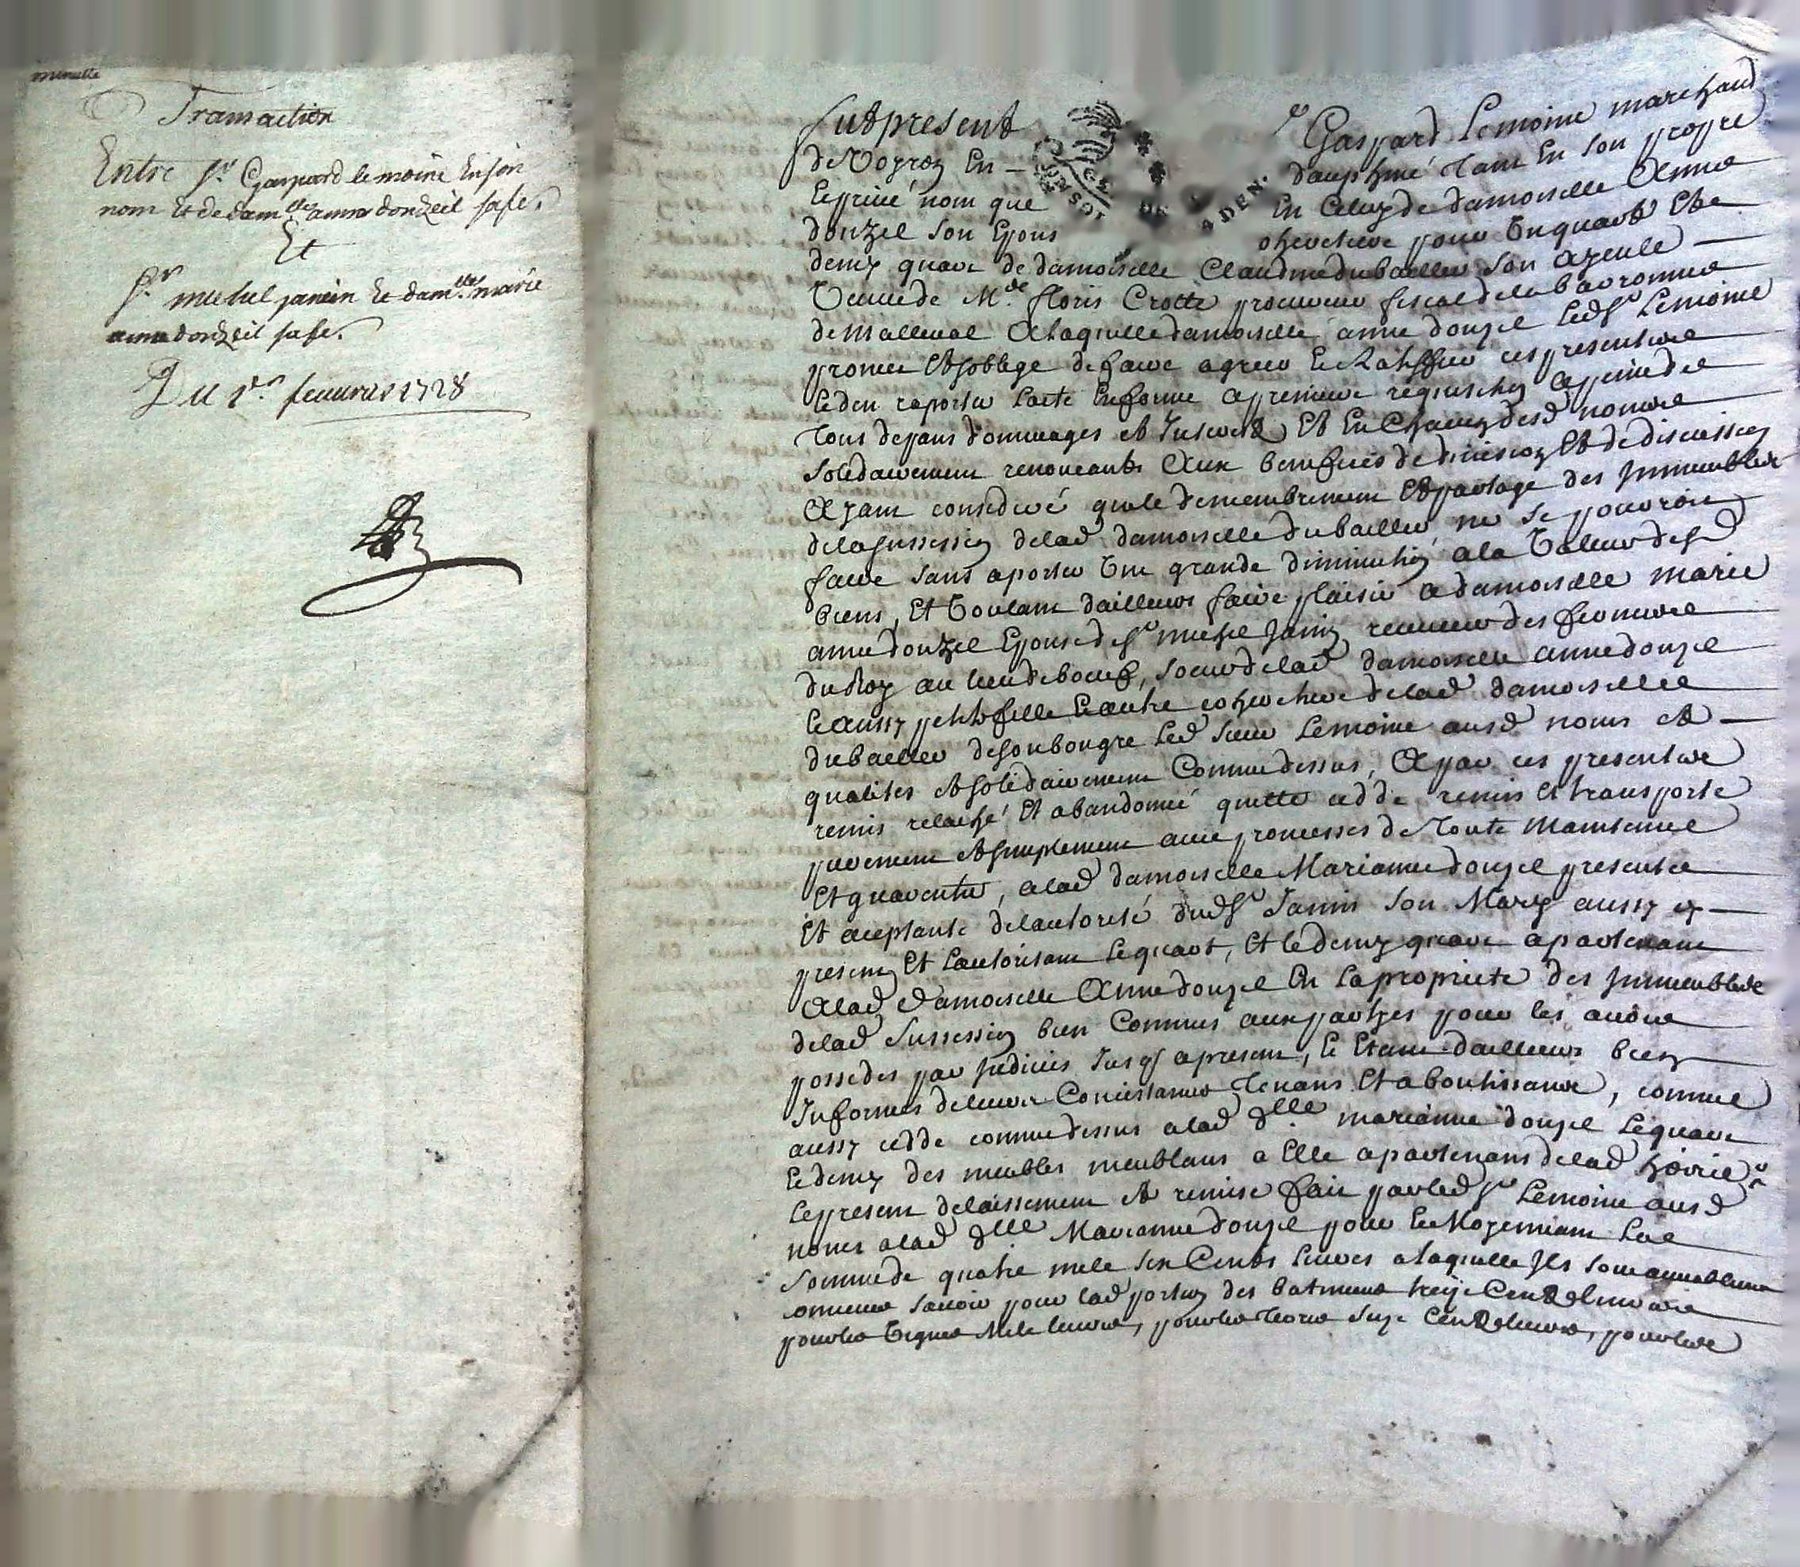 minutte
Transaction
Entre Sr. Gaspard le moine En son
nom Et de dam.lle anna donzeil sa fe.
Et
Sr. michel janin Et dam.lle marie
anna donzeil sa fe.
Du 1er feuurier 1728
fut present Sr Gaspard Lemoine marchand
de Voyron En dauphiné Tant En son propre
Et privé nom que En Celuy de damoiselle Anne
donzel son Epouse cohéritiere pour Un quart Et
demy quart de damoiselle Claudine dubaillier son ayeule
Veuve de Me. floris Crotte procureur fiscal de la baronnie
de Malleval A laquelle damoiselle anne donzel Ledt Sr Lemoine
promet Et soblige de faire agreer Et Ratiffier ces presentes
Et den raporter L'acte En forme a premiere requisition A peine de
Tous depans dommages Et Interests Et En Chacun desd noms
solidairement renonceants Aux benefices de division Et de discussion
Ayant consideré que le demembrement Et partage des Immeubles
de la sussession de lad damoiselle dubaillier ne se pouroit
faire sans aporter Une grande diminution a la Valeur desd
biens, Et Voulant dailleurs faire plaisir a damoiselle marie
anne donzel Epouse de Sr michel Janin receveur des fermes
du Roy au lieu de boeuf, soeur de lad damoiselle anne donzel
Et aussy petite fille Et autre coheritiere de lad damoiselle
dubaillier de son bon gre Led sieur Lemoine ausd noms Et
qualités Et solidairement Comme dessus, A par ces presentes
remis relaché Et abandonné quitte cedde remis Et transporte
purement Et simplement avec promesses de Toute Maintenue
Et guarentie, a lad damoiselle Marianne donzel presente
Et aceptante de lautorité dud Sr Janin son Mary aussy cy
present Et Lautorisant Le quart, Et le demy quart apartenant
A lad damoiselle Anne donzel En la proprieté des Immeubles
de lad sussession bien Connus aux parties pour les avoir
possedes par Indivis Jusqs apresent, Et Etant dailleurs bien
Informés de leurs Concistances Tenans Et aboutissants, comme
aussy cedde comme dessus a lad dlle. marianne donzel Le quart
Et demy des meubles meublans a Elle apartenans de lad hoirie
Le present delaissement Et remise fait par led Sr Lemoine ausd
noms a lad dlle Marianne donzel pour Et Moyennant La
somme de quatre mille six Cents livres a laquelle Ils sont amiablement
convenus savoir pour lad portion des batiments treize Cents livres
pour les Vignes Mille livres, pour les terres seize Cents livres, pour les